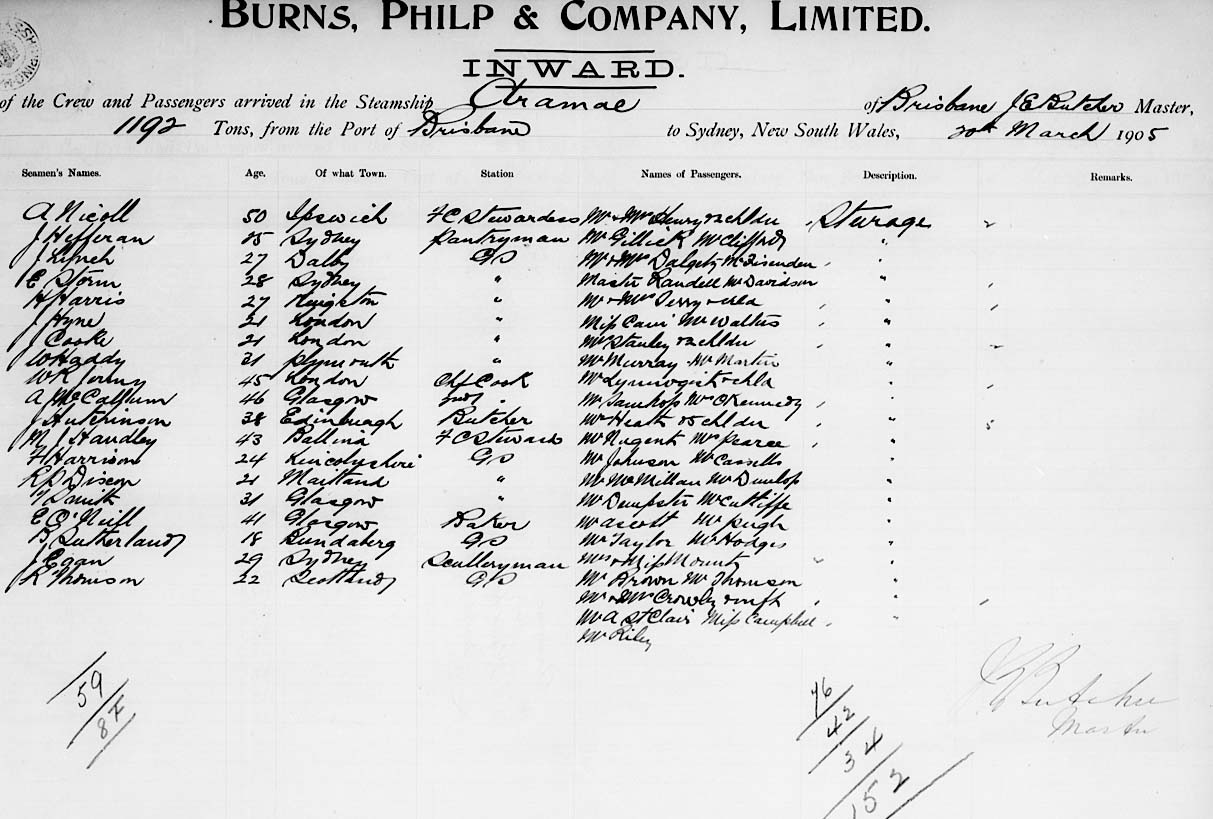 BURNS, PHILP & COMPANY, LIMITED.
INWARD.
of the Crew and Passengers arrived in the Steamship Aramac of Brisbane J E Butcher Master,
1192 Tons, from the Port of Brisbane to Sydney, New South Wales, 20th March 1905
Seamen's Names. Age, Of what Town. Station Names of Passengers. Description. Remarks.
A Nicoll 50 Ipswich F C Stewardess Mr & Mrs Henry & 2 chldn Sturage "
J Hefferan 25 Sydney Pantryman Mr Gillick Mr Clifford "
J Lynch 27 Dalby GS Mr & Mrs Dalgety "
E Storm 28 Sydney " Master Randell Mr Davidson "
H Harris 27 Kingston " Mr & Mrs Terry & chld "
J Hyne 21 London " Miss Mr Walters "
J Cooke 21 London " Mrs Stanley & 2 chldn "
W Haddy 31 Plymouth " Mr Murray Mr Martin "
W R 45 London Chf Cook & chld "
A McCallum 46 Glasgow 2nd " Mr O'Kennedy "
J Hutchinson 38 Edinburgh Butcher Mrs Heath & 5 chldn "
M J Handley 43 Ballina F C Steward Mr Nugent Mrs Pearce "
F Harrison 24 Lincolnshire GS Mr Johnson Mr Cassells "
R P Dixon 21 Maitland " Mr McMillan Mr Dunlop "
T Smith 31 Glasgow " Mr Dempster Mr Cutliffe "
E O'Neill 41 Glasgow Baker Mr Pugh "
B Sutherland 18 Bundaberg GS Mr Taylor Mr Hodges "
J Egan 29 Sydney Sculleryman Mrs & Miss Mount "
R Thomson 22 Scotland GS Mr Brown Mr Thomson "
Mr & Mrs Crowley & inft "
Mr A St Clair Miss Campbell "
Mr Riley
59
8F
76
42
34
152
J E Butcher
Master